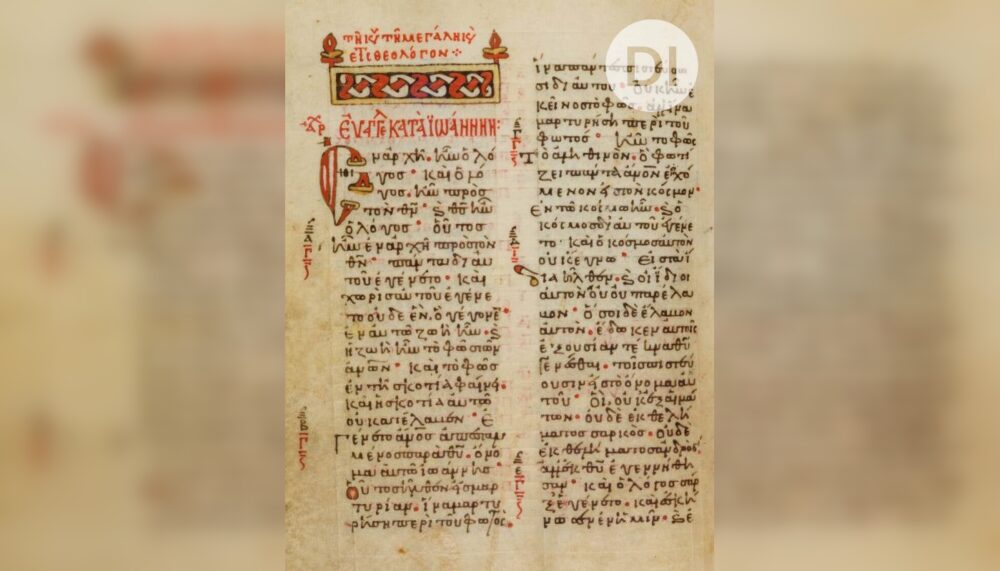 τῆ κυ τῆ μεγάλη κυ
θεολόγον
ἐυαγγε κατὰ ἰωάννην:
Ἐν ἀρχῆ. ἦν ὁ λό
γος · καὶ ὁ λό
γος. ἦν πρὸς
τὸν θν · ϗ θς ἦν
ὁ λόγος · οὗτος
ἦν ἐν ἀρχῆ πρὸς τὸν
θν · πάντα δι αυ
τοῦ ἐγένετο · καὶ
χωρὶς αυτοῦ ἐγένε
το ουδὲ ἕν. ὃ γέγονε
ἐν αυτῶ ζωὴ ἦν. ϗ
ἡ ζωὴ ἦν τὸ φῶς τῶν
ἀνων · καὶ τὸ φῶς
ἐν τῆ σκοτία φαίνει.
καὶ ἡ σκοτία αυτὸ
οὐ κατέλαβεν · Ἐ
γένετο ἄνος ἀπεσταλ
μένος παρὰ θυ · ὄνο
μα αυτῶ ἰωάννης
Οὗτος ἦλθεν εἰς μαρ
τυρίαν. ἵνα μαρτυ
ρήση περὶ τοῦ φωτός.
ἵνα πάντες πιστεύσω
σι δι αυτοῦ · οὐκ ἦν ἐ
κεῖνος τὸ φῶς. ἀλλ ἵνα
μαρτυρήση περὶ τοῦ
φωτός · ἦν τὸ φῶς
Τὸ ἀληθινὸν. ὃ φωτί
ζει πάντα ἄνον ἐρχό
μενον εἰς τὸν κόσμον.
Ἐν τῶ κόσμω ἦν. ϗ ὁ
κόσμος δι αυτοῦ ἐγένε
το · καὶ ὁ κόσμος αυτὸν
οὐκ ἔγνω · Εἰς τὰ ἴ
δια ἦλθεν. ϗ οἱ ἴδιοι
αυτὸν οὐ παρέλα
βον · ὅσοι δὲ ἔλαβον
αυτὸν. ἔδωκεν αυτοῖς
ἐξουσίαν τέκνα θυ
γενέσθαι · τοῖς πιστεύ
ουσιν εἰς τὸ ὄνομα αυ
τοῦ · Οἳ. οὐκ ἐξ αἱμά
των. ουδὲ ἐκ θελή
ματος σαρκὸς. ουδὲ
ἐκ θελήματος ἀνδρὸς.
ἀλλ ἐκ θυ ἐγεννήθη
σαν · καὶ ὁ λόγος σὰρ
ξ ἐγένετο. καὶ ἐσκή
νωσεν ἐν ἡμῖν. ϗ ἐ
DI